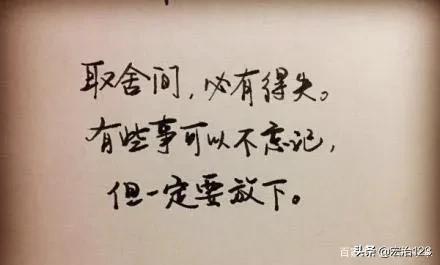 取舍间，必有得失。
有些事可以不忘记，
但一定要放下。
头条 @宏治123